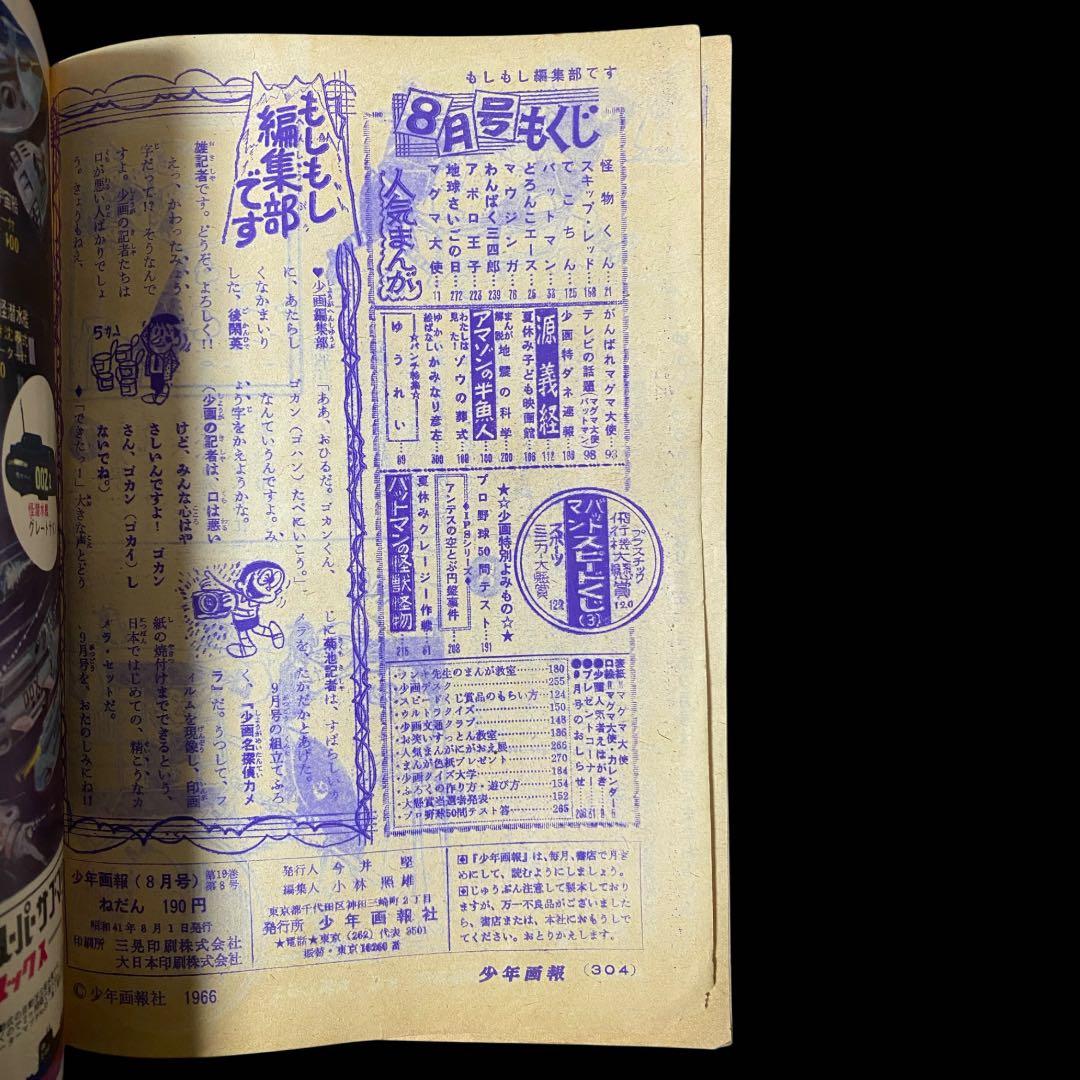 もしもし編集部です
8月号もくじ
人気まんが
怪物くん 21
スキップ・レッド 158
でこちん 125
バットマン 33
どろんこエース 25
マウジンガ 76
わんぱく三四郎 239
アポロ王子 223
地球さいごの日 272
マグマ大使 11
がんばれマグマ大使 93
テレビの話題(マグマ大使 バットマン) 98
少画特ダネ速報 189
源義経 112
夏休み子ども映画館
まんが解説 地震の科学 200
アマゾンの半魚人
わたしは見た! ゾウの葬式
ゆかい絵ばなし かみなり彦左 300
☆パンチ特集☆
ゆうれい 89
プラスチック
飛行機大懸賞 120
バットマンスピードくじ(3)
スポーツ
ミニカー大懸賞 122
★☆少画特別よみもの☆★
プロ野球50問テスト 191
◆IPSシリーズ◆
アンデスの空とぶ円盤事件 208
夏休みクレージー作戦 81
バットマンの怪獣怪物 216
表紙=マグマ大使
口絵=マグマ大使・カレンダー
●少画人気者えはがき
●プレゼントコーナー
●9月号のおしらせ
先生のまんが教室 180
255
スピードくじ賞品のもらい方 124
ウルトラクイズ 150
少画文通クラブ 148
お笑いすっとん教室 186
人気まんがにがおえ展 266
まんが色紙プレゼント 270
少画クイズ大学 184
ふろくの作り方・遊び方 154
大懸賞当選者発表 152
プロ野球50問テスト答 265
もしもし
編集部
です
♥少画編集部
に、あたらし
くなかまいり
した、後閑英
雄記者です。どうぞ、よろしく!!
えっ、かわったみょう
字だって!? そうなんで
すよ。少画の記者たちは
口が悪い人ばかりでしょ
う。きょうもねえ、
「ああ、おひるだ。ゴカンくん、
ゴカン(ゴハン)たべにいこう。」
なんていうんですよ。み
ょう字をかえようかな。
(少画の記者は、口は悪い
けど、みんな心はや
さしいんですよ! ゴカン
さん、ゴカン(ゴカイ)し
ないでね。)
◆「できたっ!」大きな声とどう
じに菊池記者は、すばらしいカ
メラを、たかだかとあげた。
9月号の組立てふろ
く、『少画名探偵カメ
ラ』だ。うつして、フ
ィルムを現像し、印画
紙の焼付けまでできるという、
日本ではじめての、精こうなカ
メラ・セットだ。
9月号を、おたのしみにね!!
5カン
少年画報(8月号) 第19巻 第8号
ねだん 190円
昭和41年8月1日発行
印刷所 三晃印刷株式会社
大日本印刷株式会社
発行人 今井堅
編集人 小林照雄
東京都千代田区神田三崎町2丁目
発行所 少年画報社
★電話★東京(262)代表3501
振替・東京16260番
『少年画報』は、毎月、書店で月ぎ
めにして、読むようにしましょう。
じゅうぶん注意して製本しており
ますが、万一不良品がございまし
たら、書店または、本社におもうしで
てください。おとりかえします。
少年画報 (304)
©少年画報社 1966
002
グレート